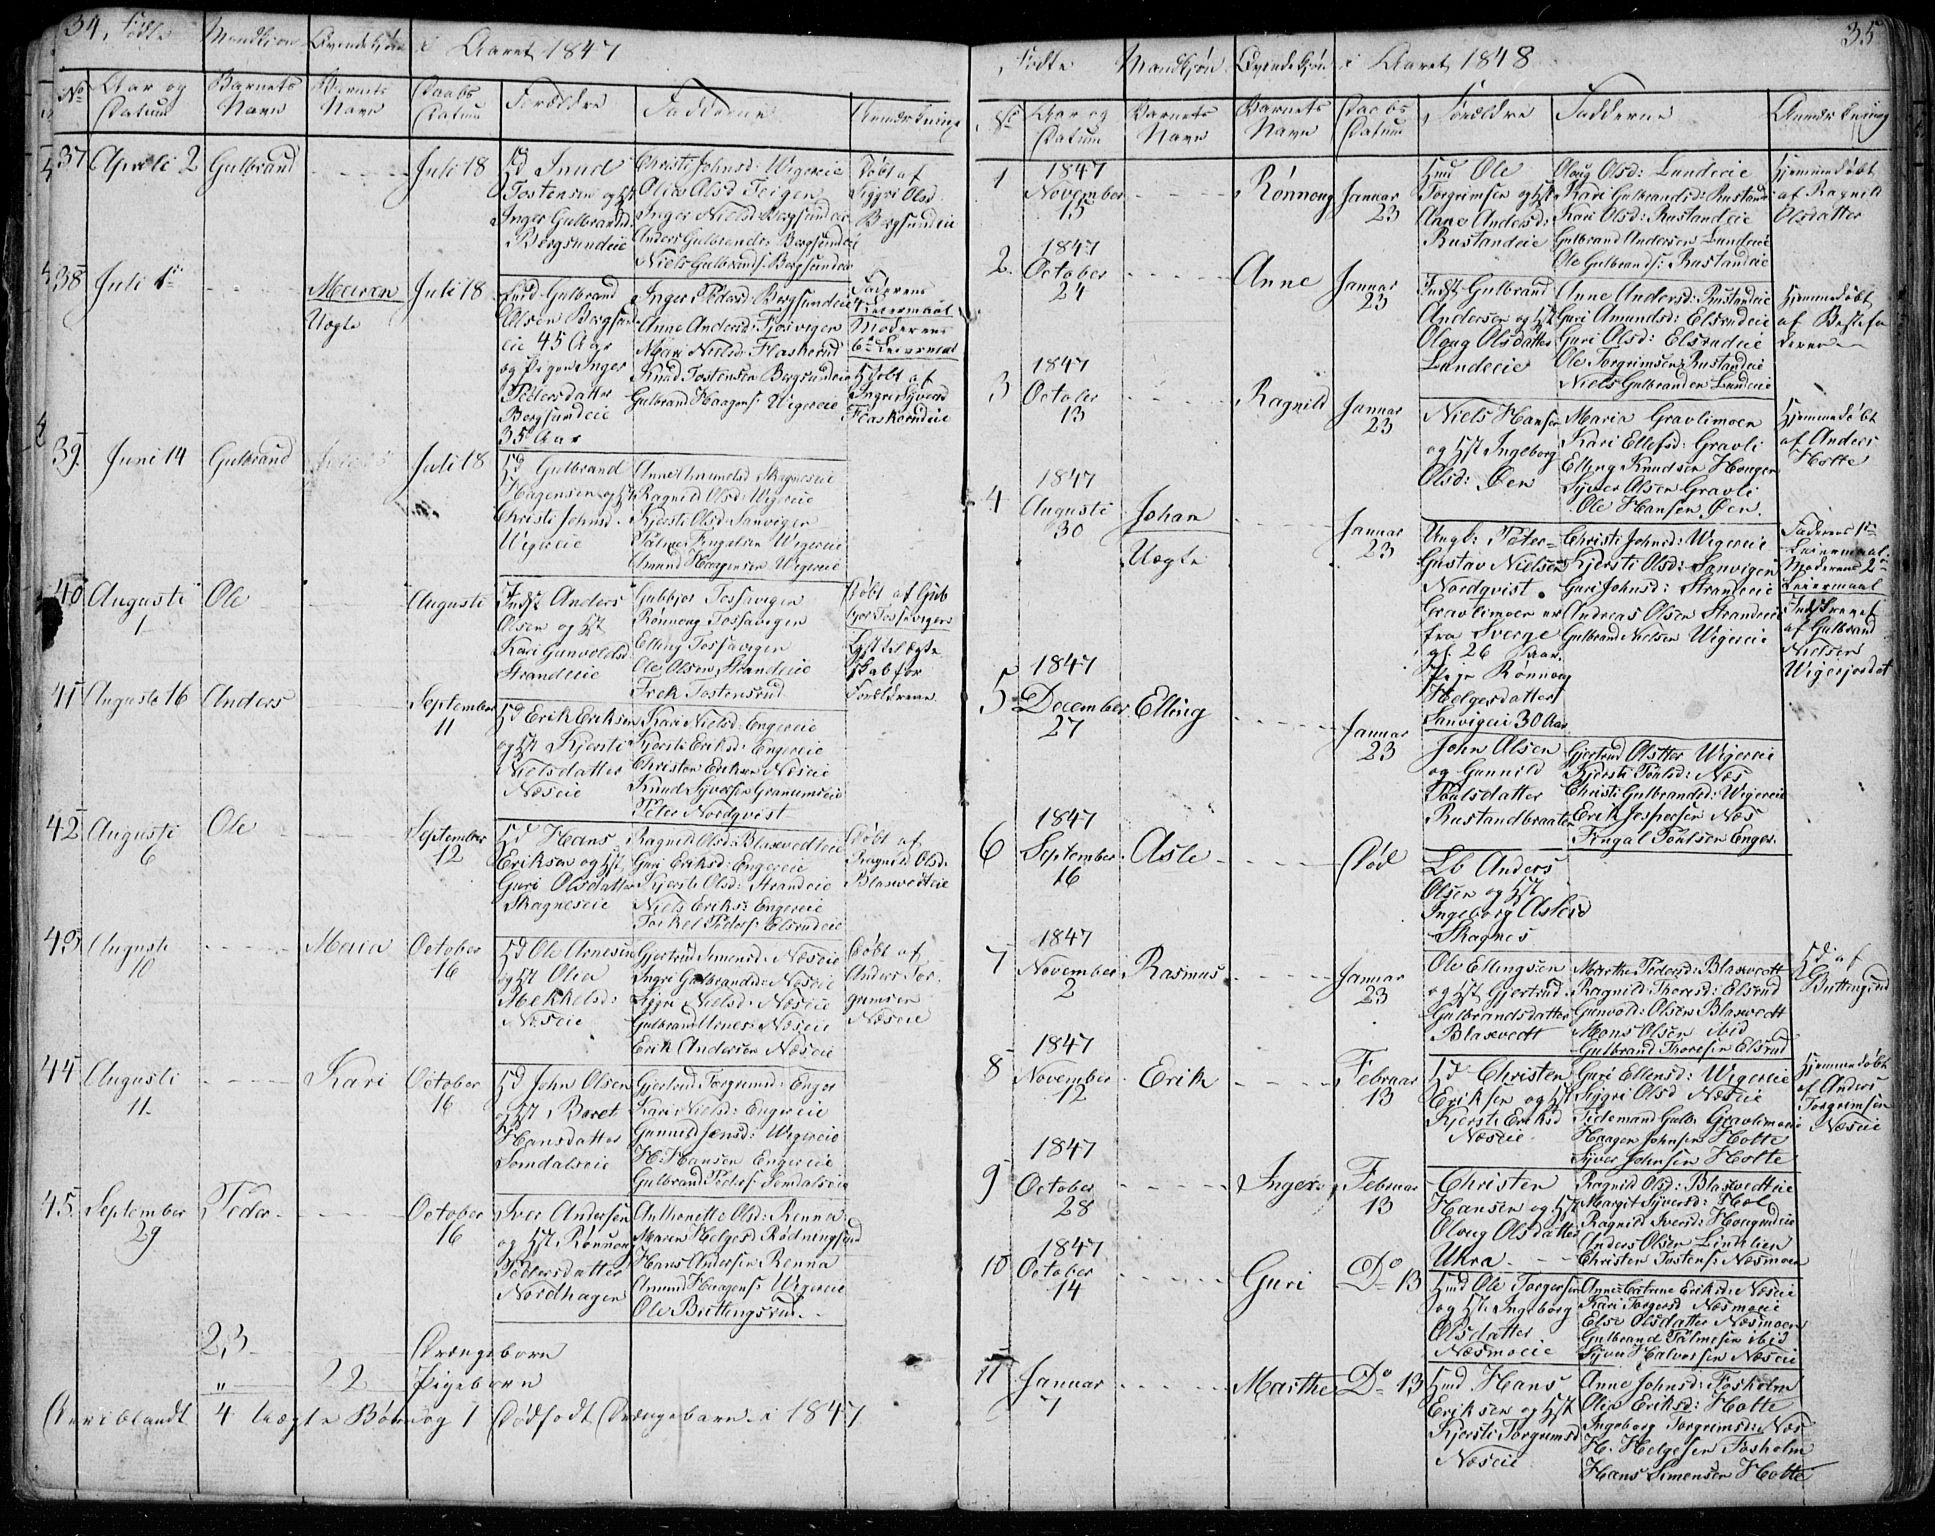 34. Fødte Mandkjøn Qvindekjøn i Aaret 1847
No
Aar og Datum
Barnets Navn
Barnets Navn
Daabs Datum
Forældre
Fadderne
Anmærkning
37 Aprili 2 Gulbrand Juli 18
Tostensen og Hst
Inger Gulbrandsd:
Bergsundeie
Christi Johnsd: Wigereie
Olia Olsd Teigen
Inger Nielsd: Bergsundeie
Anders Gulbrands: Bergsundeie
Niels Gulbrands: Bergsundeie
Døbt af
Siggri Olsd
Bergsundeie
38 Juli 1 Maren Uægte Juli 18
Gulbrand
Olsen Bergsund
eie 45 Aar
og Pigen Inger
Pedersdatter
Bergsundeie
35 Aar
Inger Pedersd: Bergsundeie
Anne Andersd: Fjosvigen
Mari Nielsd: Flaskerud
Knud Tostensen Bergsundeie
Gulbrand Haagens: Wigereie
Faderens
Leiermaal
Moderens
6te Leiermaal
Døbt af
39. Juni 14 Gulbrand Juli 18
Hd Gulbrand
Hagensen og Hst
Christi Johnsd.
Wigereie
Skagneseie
Ragnild Olsd: Wigereie
Kjersti Olsd Sanvigen
Wigereie
Amund Haagensen Wigereie
40 Augusti 1 Ole Augusti
Indst Anders
Olsen og Hst
Kari Gunvoldsd
Strandeie
Gubbjør Tossavigen
Rønnoug Tossavigen
Elling Tossavigen
Ole Olsen Strandeie
Tostensrud
Døbt af
skab for
Forældrene
41 Augusti 16 Anders September 11
Hd Erik Eriksen
og Hst Kjersti
Nielsdatter
Næseie
Kari Nielsd Engereie
Kjersti Eriksd: Engereie
Christen Eriksen Næseie
Knud Syversen Granumseie
Peter Nordqvist
42 Augusti 6 Ole September 12
Hd Hans
Eriksen og Hst
Guri Olsdatter
Skagneseie
Ragnild Olsd: Blaxvedteie
Guri Eriksd: Engereie
Kjersti Olsd: Strandeie
Niels Eriks: Engereie
Torkel Peders: Elsrudeie
Døbt af
Ragnild Olsd:
Blaxvedteie
43 Augusti 10 Maria October 16
Hd Ole Arnesen
og Hst Olia
Mekkelsd:
Næseie
Gjertrud Simensd: Næseie
Ingri Gulbrandsd: Næseie
Sigri Nielsd: Næseie
Gulbrand Arnes: Næseie
Erik Andersen Næseie
Døbt af
Anders Tor-
grimsen
Næseie
44 Augusti 11. Kari October 16
Hd John Olsen
og Hst Beret
Hansdatter
Semdalseie
Gjertrud Torgrimsd: Enger
Kari Nielsd: Engereie
Gunnild Jensd: Wigereie
H: Hansen Engereie
Gulbrand Peders: Semdalseie
45 September 29 Peder October 16
Iver Andersen
og Hst Rønnoug
Pedersdatter
Nordhagen
Anthonette Olsd: Renna
Maren Helgesd Rødningsand
Hans Andersen Renna
Amund Haagens: Wigereie
Ole Buttingsrud
23 Drængebørn
22 Pigebørn
Hvoriblandt 4 Uægte Børn og 1 Dødfødt Drængebarn i 1847
35
Fødte Mandkjøn Qvindekjøn i Aaret 1848
No
Aar og Datum
Barnets Navn
Barnets Navn
Daabs Datum
Forældre
Fadderne
Anmærkning
1 1847 November 15 Rønnoug Januar 23
Hmd Ole
Torgrimsen og Hst
Anne Andersd:
Rustandeie
Oloug Olsd: Lundeeie
Kari Gulbrandsd: Rustand
Kari Olsd: Rustandeie
Gulbrand Andersen Lundeeie
Ole Gulbrands: Rustandeie
Hjemmedøbt
af Ragnild
Olsdatter
2. 1847 October 24 Anne Januar 23
Indst Gulbrand
Andersen og Hst
Oloug Olsdatter
Lundeeie
Anne Andersd: Rustandeie
Guri Amundsd: Elsrudeie
Guri Olsd: Elsrudeie
Ole Torgrimsen Rustandeie
Niels Gulbrandsen Lundeeie
Hjemmedøbt
af Bestefa
deren
3 1847 October 13 Ragnild Januar 23
Niels Hansen
og Hst Ingeborg
Olsd: Øen
Maria Gravlimoen
Kari Ellefsd: Gravli
Elling Knudsen Hougen
Syver Olsen Gravli
Ole Hansen Øen.
Hjemmedøbt
af Anders
Holte
4 1847 Augusti 30 Johan Uægte Januar 23
Ungk: Peter
Gustav Nielsen
Nordqvist
Gravlimoen er
fra Sverge
26 Aar.
Pige Rønnoug
Helgesdatter
Sanvigeie 30 Aar
Christi Johnsd: Wigereie
Kjersti Olsd: Sanvigen
Guri Johnsd: Strandeie
Andreas Olsen Strandeie
Gulbrand Nielsen Wigereie
Faderens 1te
Leiermaal
Moderens 2
Leiermaal
Indskrevet
af Gulbrand
Nielsen
Wigerjordet
5 1847 December 27 Elling Januar 23
John Olsen
og Gunnild
Poulsdatter
Rustandbraaten
Gjertrud Olsdtter Wigereie
Kjersti Poulsd: Næs
Christi Gulbrandsd: Wigereie
Erik Jespersen Næs
Fingal Poulsen Enger.
6 1847 September 16 Asle Død
Lb Anders
Olsen og Hst
Ingeborg Aslesd
Skagnes
7 1847 November 2 Rasmus Januar 23
Ole Ellingsen
og Hst Gjertrud
Gulbrandsdatter
Blaxvedt
Marthe Pedersd: Blaxvedt
Ragnild Thoresd: Elsrud
Gunvold Olsen Blaxvedt
Mons Olsen ibid
Gulbrand Thoresen Elsrud
Hd: af
Buttingsrud
8 1847 November 12 Erik Februar 13
Hd Christen
Eriksen og Hst
Kjersti Eriksd
Næseie
Guri Ellensd: Wigereie
Siggri Olsd Næseie
Tidemand Gulb: Gravlimoeie
Haagen Johnsen Holte
Syver Johnsen Holte
Hjemmedøbt
af Anders
Torgrimsen
Næseie
9 1847 October 28 Inger Februar 13
Christen
Hansen og Hst
Oloug Olsdatter
Ukra
Ragnild Olsd: Blaxvedteie
Margit Syversd: Hol
Ragnild Iversd: Hougsrudeie
Anders Olsen Lindelien
Christen Tostens: Næsmoen
10 1847 October 14 Guri Do 13
Hmd Ole Torgersen
og Hst Ingeborg
Olsdatter
Næsmoeie
Anne Catrine Eriksd: Næseie
Kari Torgersd Næsmoeie
Else Olsdatter Næsmoen
Gulbrand Palmesen ibid
Syver Halvorsen Næseie
11 Januar 7 Marthe Do 13
Hmd Hans
Eriksen og Hst
Kjersti Torgrimsd
Næseie
Anne Johnsd: Fosholm
Olia Eriksd: Holte
Ingeborg Torgrimsd: Næs
H: Helgesen Fosholm
Hans Simensen Holte